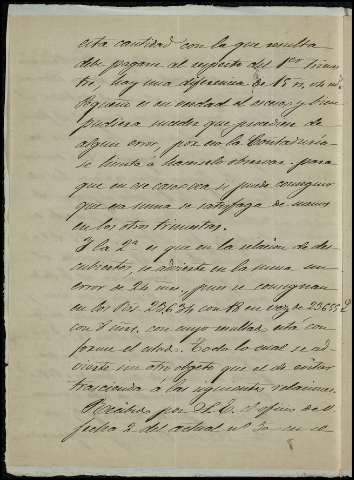 esta cantidad con la que resulta
debe pagarse al respecto del 1er trimes
tre, hay una diferencia de 15 r.
Pequeño es en verdad el exceso, y bien
pudiera suceder que procediese de
algun error, por eso la Contaduría
se limita á hacerlo observar para
que en ese caso sea si puede conseguir
que esa suma se satisfaga de menos
en los otros trimestres.
Y la 2ª es que en la relacion de des
cubiertos, se advierte en la suma un
error de 24 mrs., pues se consignan
en los Rs. 23.634 con 18 en vez de 23.655
con 8 mrs. con cuyo resultado está con
forme el otro. Todo lo cual se ad
vierte sin otro objeto que el de evitar
trascienda á las siguientes relaciones.
Recibido por S.E. el oficio de V.
fecha 2 del actual nº 30 en el